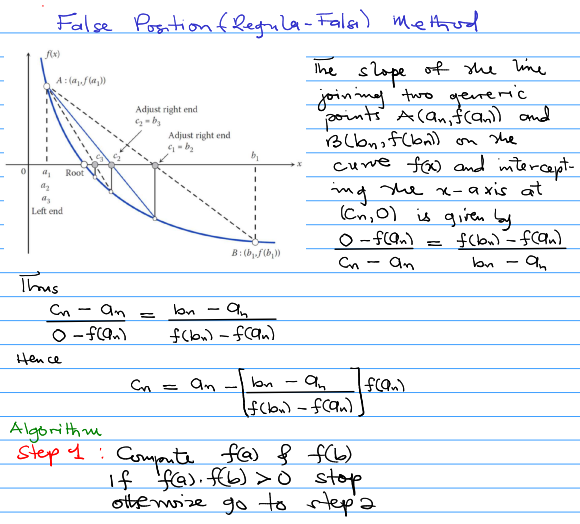 False Position (Regula-Falsi) Method
f(x)
A : (a₁, f(a₁))
Adjust right end
c₂ = b₃
Adjust right end
c₁ = b₂
c₃ c₂ b₁
x
0 a₁ Root
a₂
a₃
Left end
B : (b₁, f(b₁))
The slope of the line
joining two generic
points A(an, f(an)) and
B(bn, f(bn)) on the
curve f(x) and intercept-
ing the x-axis at
(Cn, 0) is given by
0 - f(an) / Cn - an = f(bn) - f(an) / bn - an
Thus
Cn - an / 0 - f(an) = bn - an / f(bn) - f(an)
Hence
Cn = an - [bn - an / f(bn) - f(an)] f(an)
Algorithm
Step 1 : Compute f(a) & f(b)
If f(a). f(b) > 0 stop
otherwise go to step 2